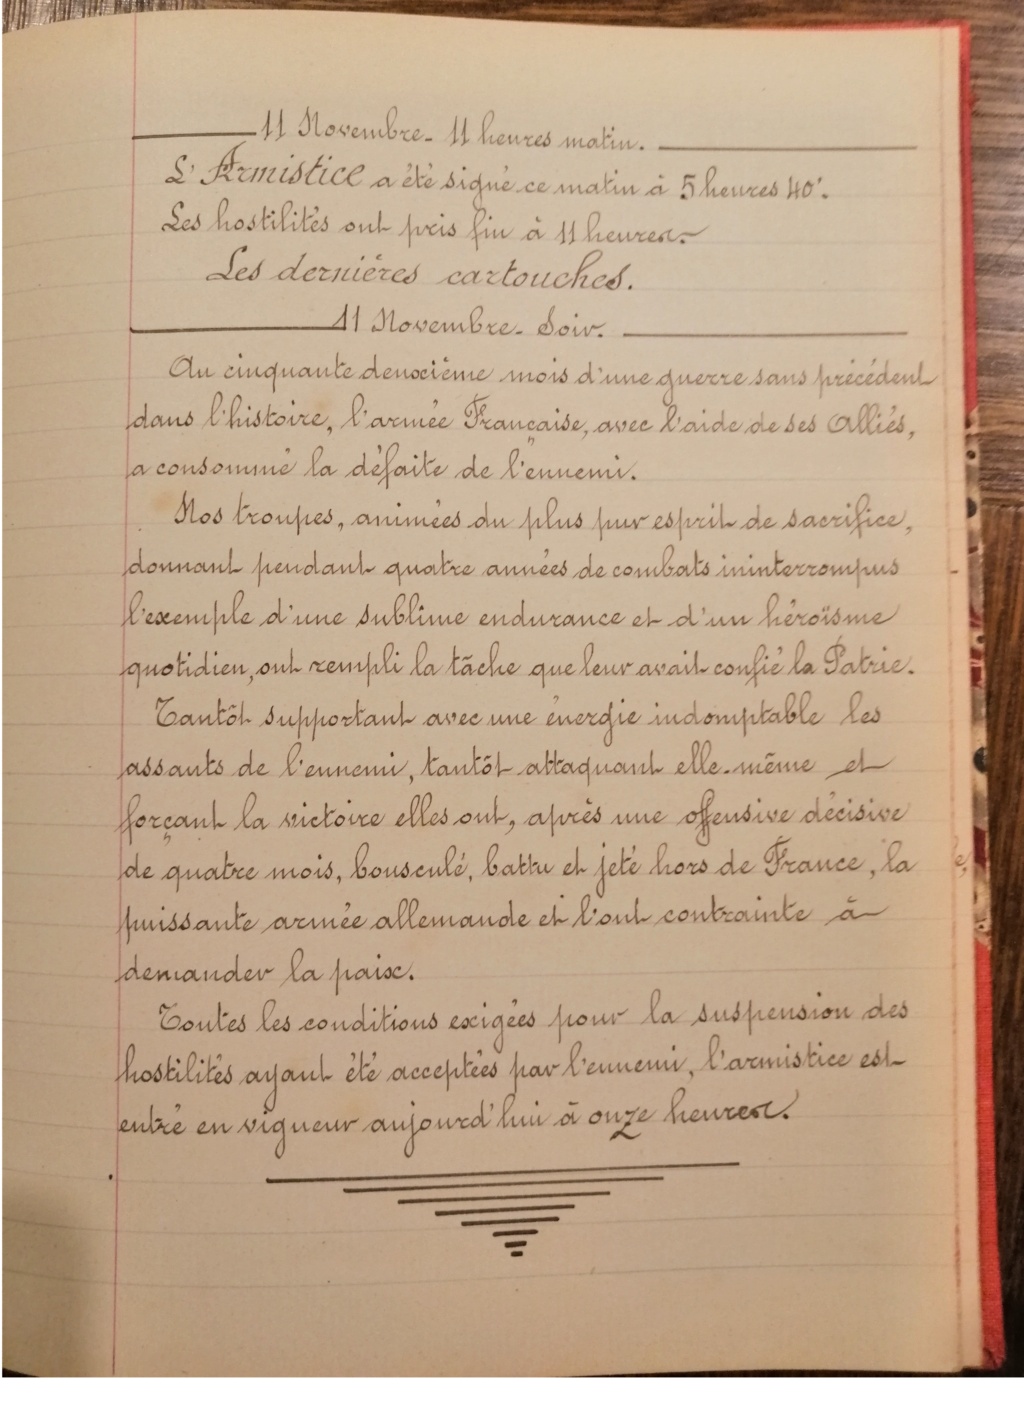 11 Novembre - 11 heures matin.
L'Armistice a été signé ce matin à 5 heures 40'.
Les hostilités ont pris fin à 11 heures.
Les dernières cartouches.
11 Novembre - Soir.
Au cinquante deuxième mois d'une guerre sans précédent
dans l'histoire, l'armée Française, avec l'aide de ses Alliés,
a consommé la défaite de l'ennemi.
Nos troupes, animées du plus pur esprit de sacrifice,
donnant pendant quatre années de combats ininterrompus
l'exemple d'une sublime endurance et d'un héroïsme
quotidien, ont rempli la tâche que leur avait confié la Patrie.
Tantôt supportant avec une énergie indomptable les
assauts de l'ennemi, tantôt attaquant elle-même et
forçant la victoire elles ont, après une offensive décisive
de quatre mois, bousculé, battu et jeté hors de France, la
puissante armée allemande et l'ont contrainte à
demander la paix.
Toutes les conditions exigées pour la suspension des
hostilités ayant été acceptées par l'ennemi, l'armistice est
entré en vigueur aujourd'hui à onze heures.